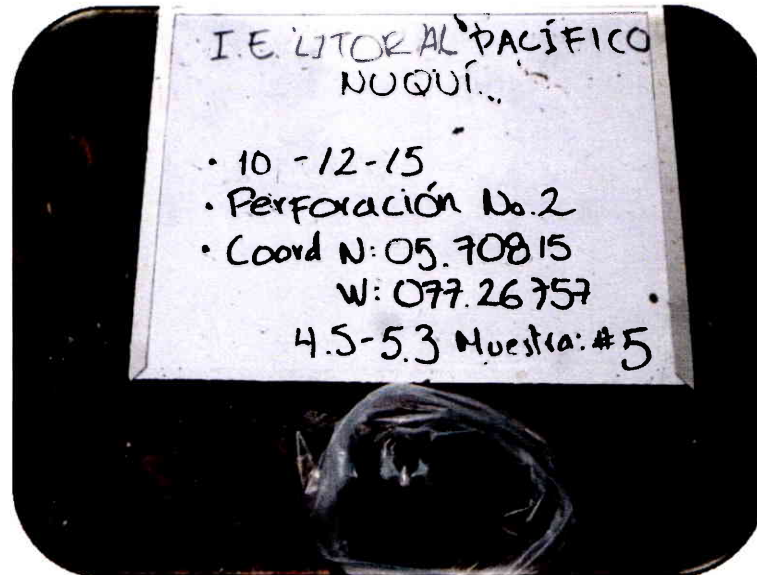 I.E. LITORAL PACÍFICO
NUQUÍ.
• 10 -12-15
• Perforación No.2
• Coord N: 05.70815
W: 077.26757
4.5-5.3 Muestra: #5